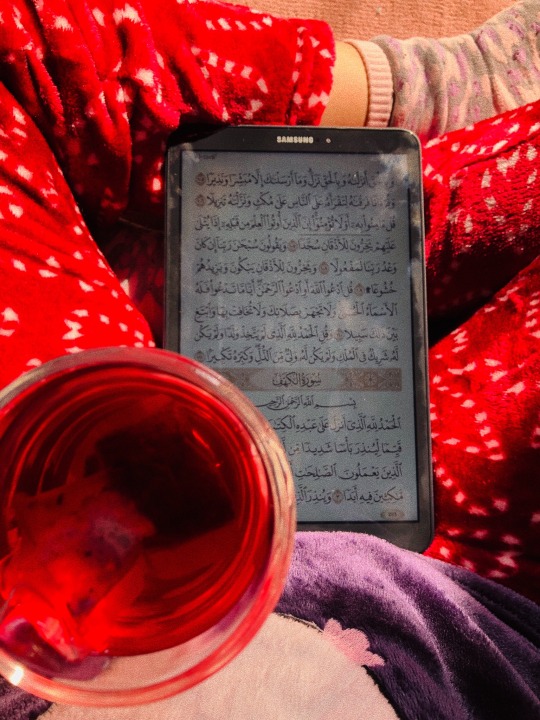 SAMSUNG
وَبِٱلْحَقِّ أَنزَلْنَٰهُ وَبِٱلْحَقِّ نَزَلَ وَمَآ أَرْسَلْنَٰكَ إِلَّا مُبَشِّرًا وَنَذِيرًا ۝١٠٥
وَقُرْءَانًا فَرَقْنَٰهُ لِتَقْرَأَهُۥ عَلَى ٱلنَّاسِ عَلَىٰ مُكْثٍ وَنَزَّلْنَٰهُ تَنزِيلًا ۝١٠٦
قُلْ ءَامِنُوا۟ بِهِۦٓ أَوْ لَا تُؤْمِنُوٓا۟ إِنَّ ٱلَّذِينَ أُوتُوا۟ ٱلْعِلْمَ مِن قَبْلِهِۦٓ إِذَا يُتْلَىٰ
عَلَيْهِمْ يَخِرُّونَ لِلْأَذْقَانِ سُجَّدًا ۝١٠٧ وَيَقُولُونَ سُبْحَٰنَ رَبِّنَآ إِن كَانَ
وَعْدُ رَبِّنَا لَمَفْعُولًا ۝١٠٨ وَيَخِرُّونَ لِلْأَذْقَانِ يَبْكُونَ وَيَزِيدُهُمْ
خُشُوعًا ۩ ۝١٠٩ قُلِ ٱدْعُوا۟ ٱللَّهَ أَوِ ٱدْعُوا۟ ٱلرَّحْمَٰنَ أَيًّا مَّا تَدْعُوا۟ فَلَهُ
ٱلْأَسْمَآءُ ٱلْحُسْنَىٰ وَلَا تَجْهَرْ بِصَلَاتِكَ وَلَا تُخَافِتْ بِهَا وَٱبْتَغِ
بَيْنَ ذَٰلِكَ سَبِيلًا ۝١١٠ وَقُلِ ٱلْحَمْدُ لِلَّهِ ٱلَّذِى لَمْ يَتَّخِذْ وَلَدًا وَلَمْ يَكُن
لَّهُۥ شَرِيكٌ فِى ٱلْمُلْكِ وَلَمْ يَكُن لَّهُۥ وَلِىٌّ مِّنَ ٱلذُّلِّ وَكَبِّرْهُ تَكْبِيرًۢا ۝١١١
سُورَةُ الكَهْفِ
بِسْمِ ٱللَّهِ ٱلرَّحْمَٰنِ ٱلرَّحِيمِ
ٱلْحَمْدُ لِلَّهِ ٱلَّذِىٓ أَنزَلَ عَلَىٰ عَبْدِهِ ٱلْكِتَٰبَ
قَيِّمًا لِّيُنذِرَ بَأْسًا شَدِيدًا مِّن
ٱلَّذِينَ يَعْمَلُونَ ٱلصَّٰلِحَٰتِ
مَّٰكِثِينَ فِيهِ أَبَدًا ۝٣ وَيُنذِرَ ٱلَّذِينَ